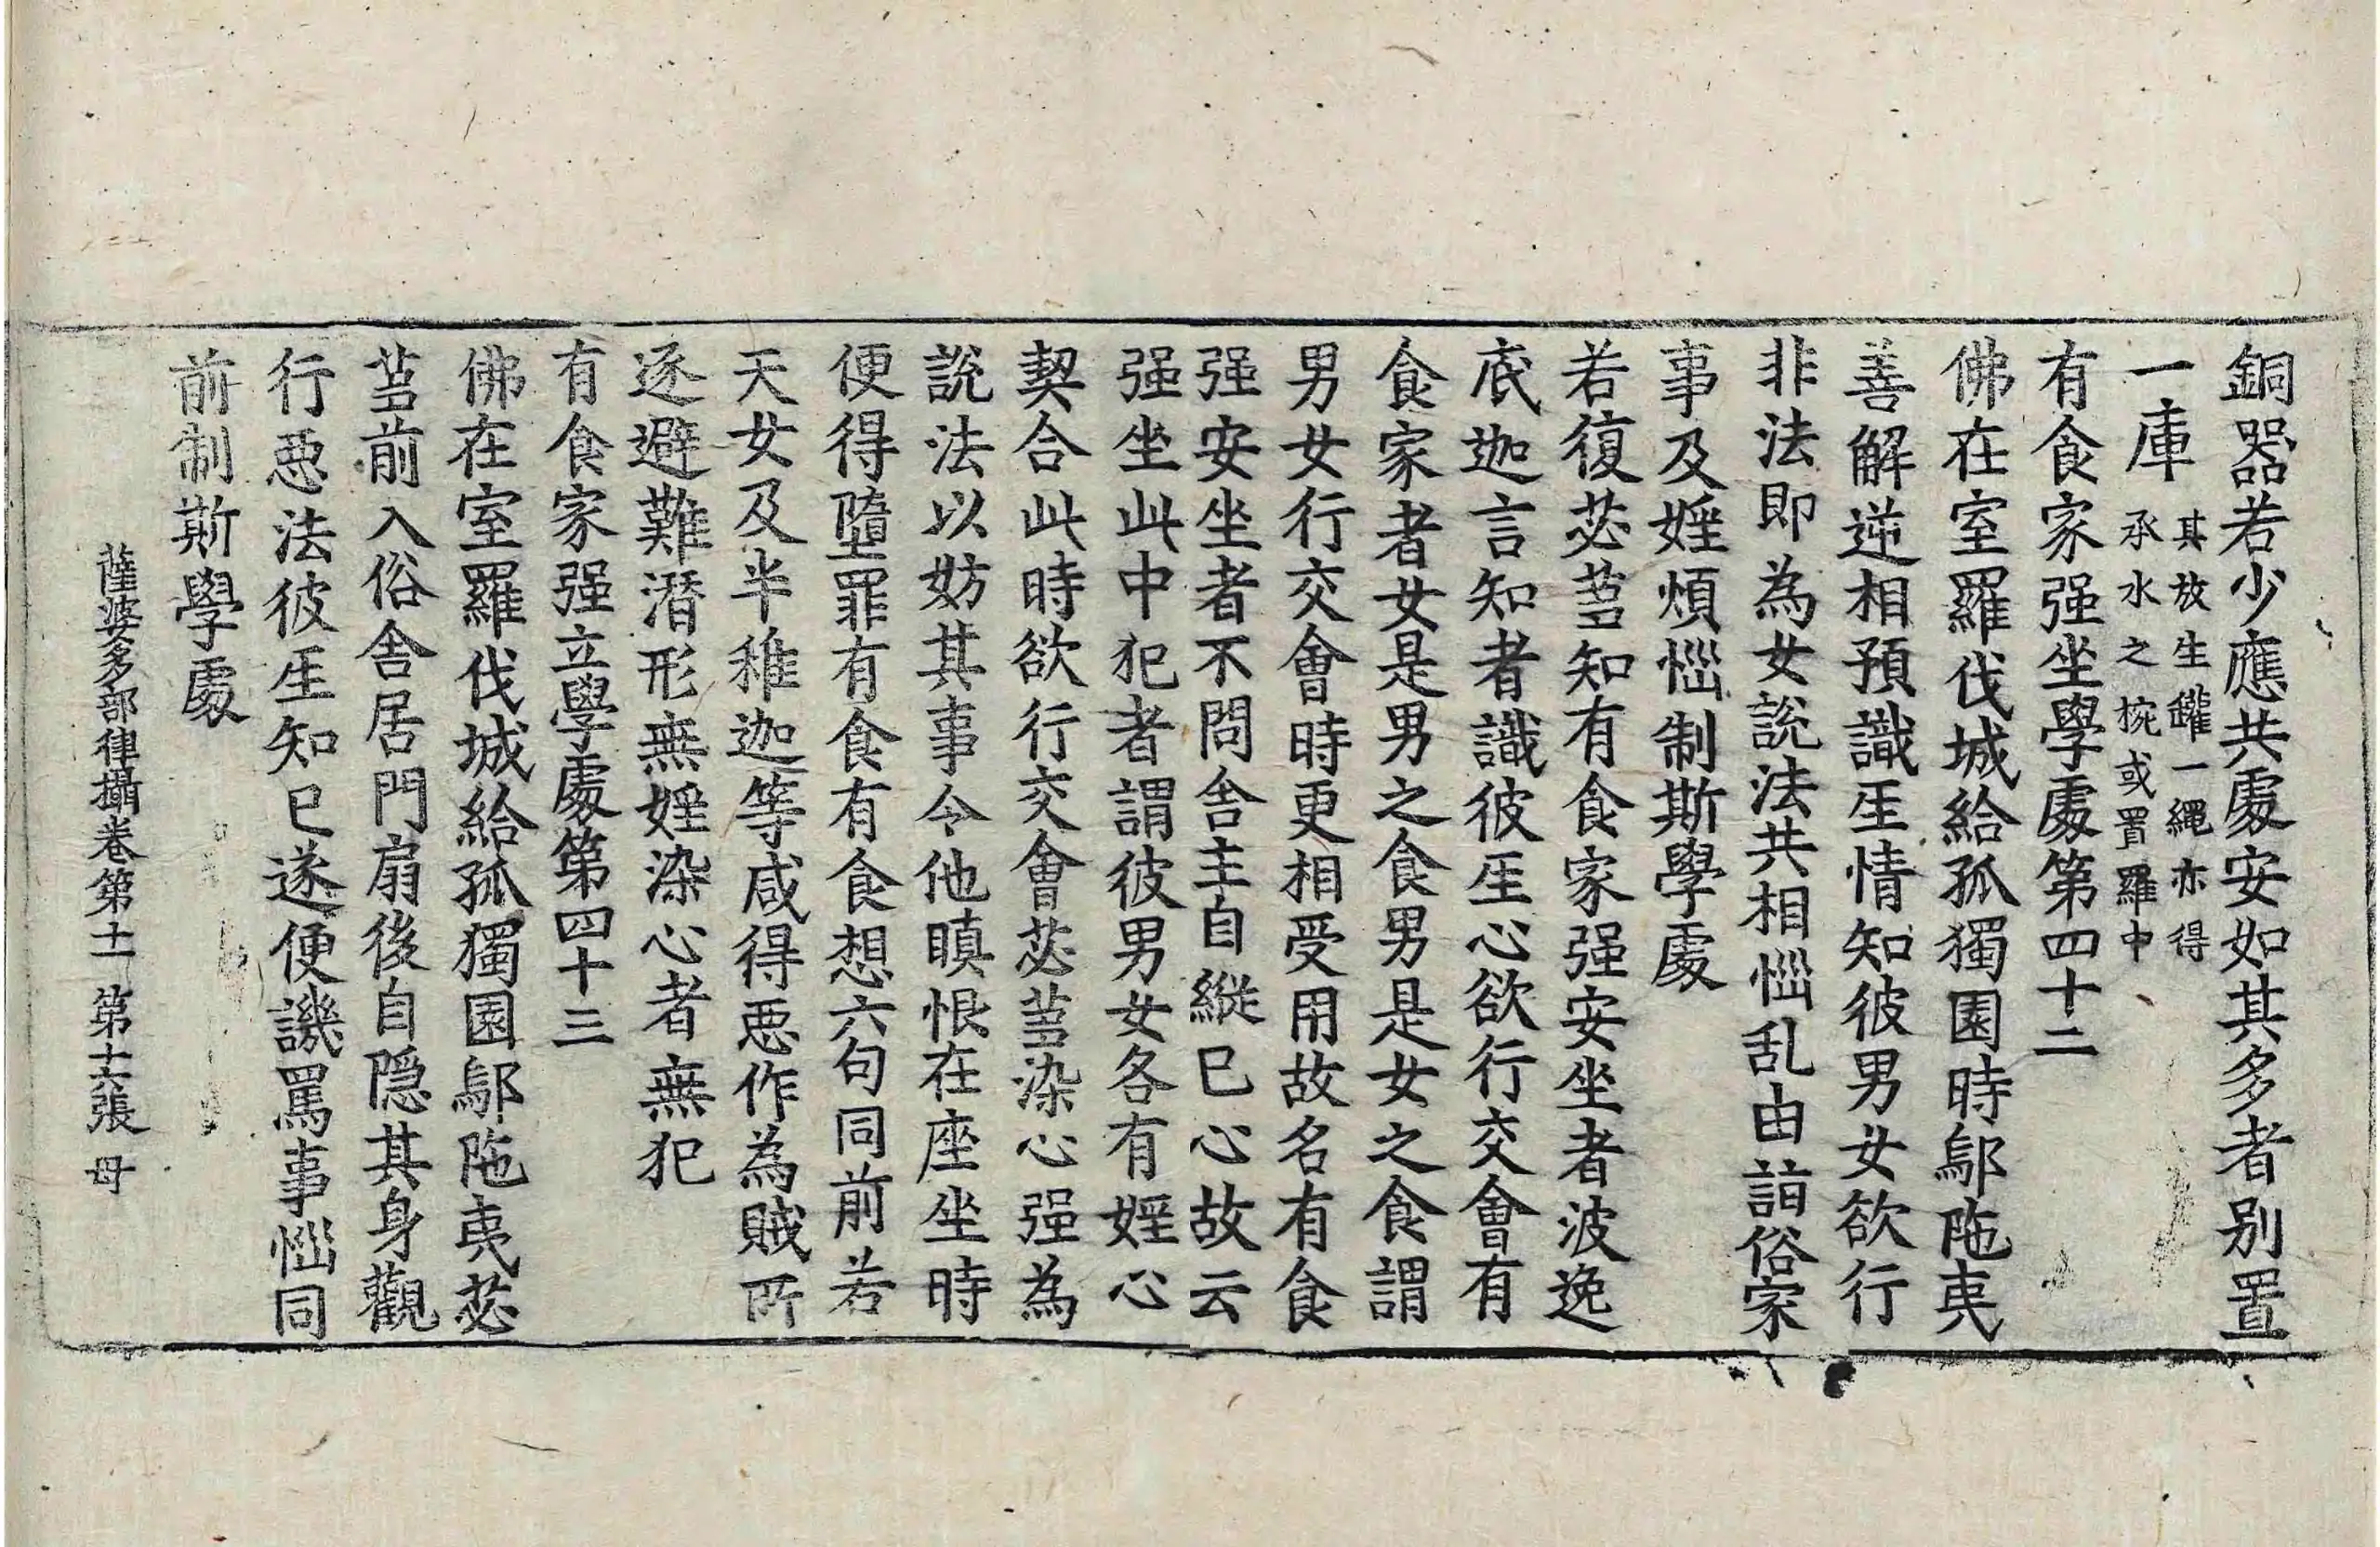 銅器若少應共處安如其多者别置
一庫其放生鑵一繩亦得
承水之椀或置羅中
有食家强坐學處第四十二
佛在室羅伐城給孤獨園時鄔陁夷
善解逆相預識𤯔情知彼男女欲行
非法即為女說法共相惱乱由詣俗家
事及婬煩惱制斯學處
若復苾蒭知有食家强安坐者波逸
底迦言知者識彼𤯔心欲行交會有
食家者女是男之食男是女之食謂
男女行交會時更相受用故名有食
强安坐者不問舍主自縱已心故云
强坐此中犯者謂彼男女各有婬心
契合此時欲行交會苾蒭染心强為
說法以妨其事令他瞋恨在座坐時
便得墮罪有食有食想六句同前若
天女及半稚迦等咸得惡作為賊所
逐避難潜形無婬染心者無犯
有食家强立學處第四十三
佛在室羅伐城給孤獨園鄔陁夷苾
蒭前入俗舍居門扇後自隱其身觀
行惡法彼𤯔知已遂便譏罵事惱同
前制斯學處
薩婆多部律攝卷第十一 第十六張 母